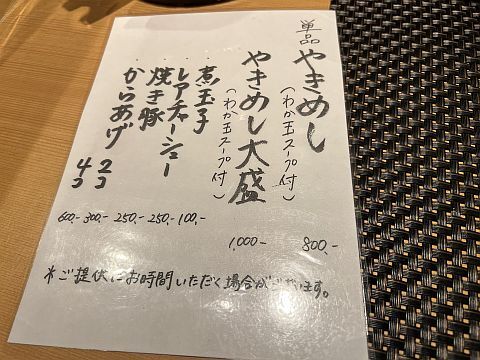 単品
やきめし
(わか玉スープ付)
800.-
やきめし大盛
(わか玉スープ付)
1,000.-
煮玉子
100.-
レアチャーシュー
250.-
焼き豚
250.-
からあげ
2コ
300.-
4コ
600.-
*ご提供にお時間いただく場合がございます。